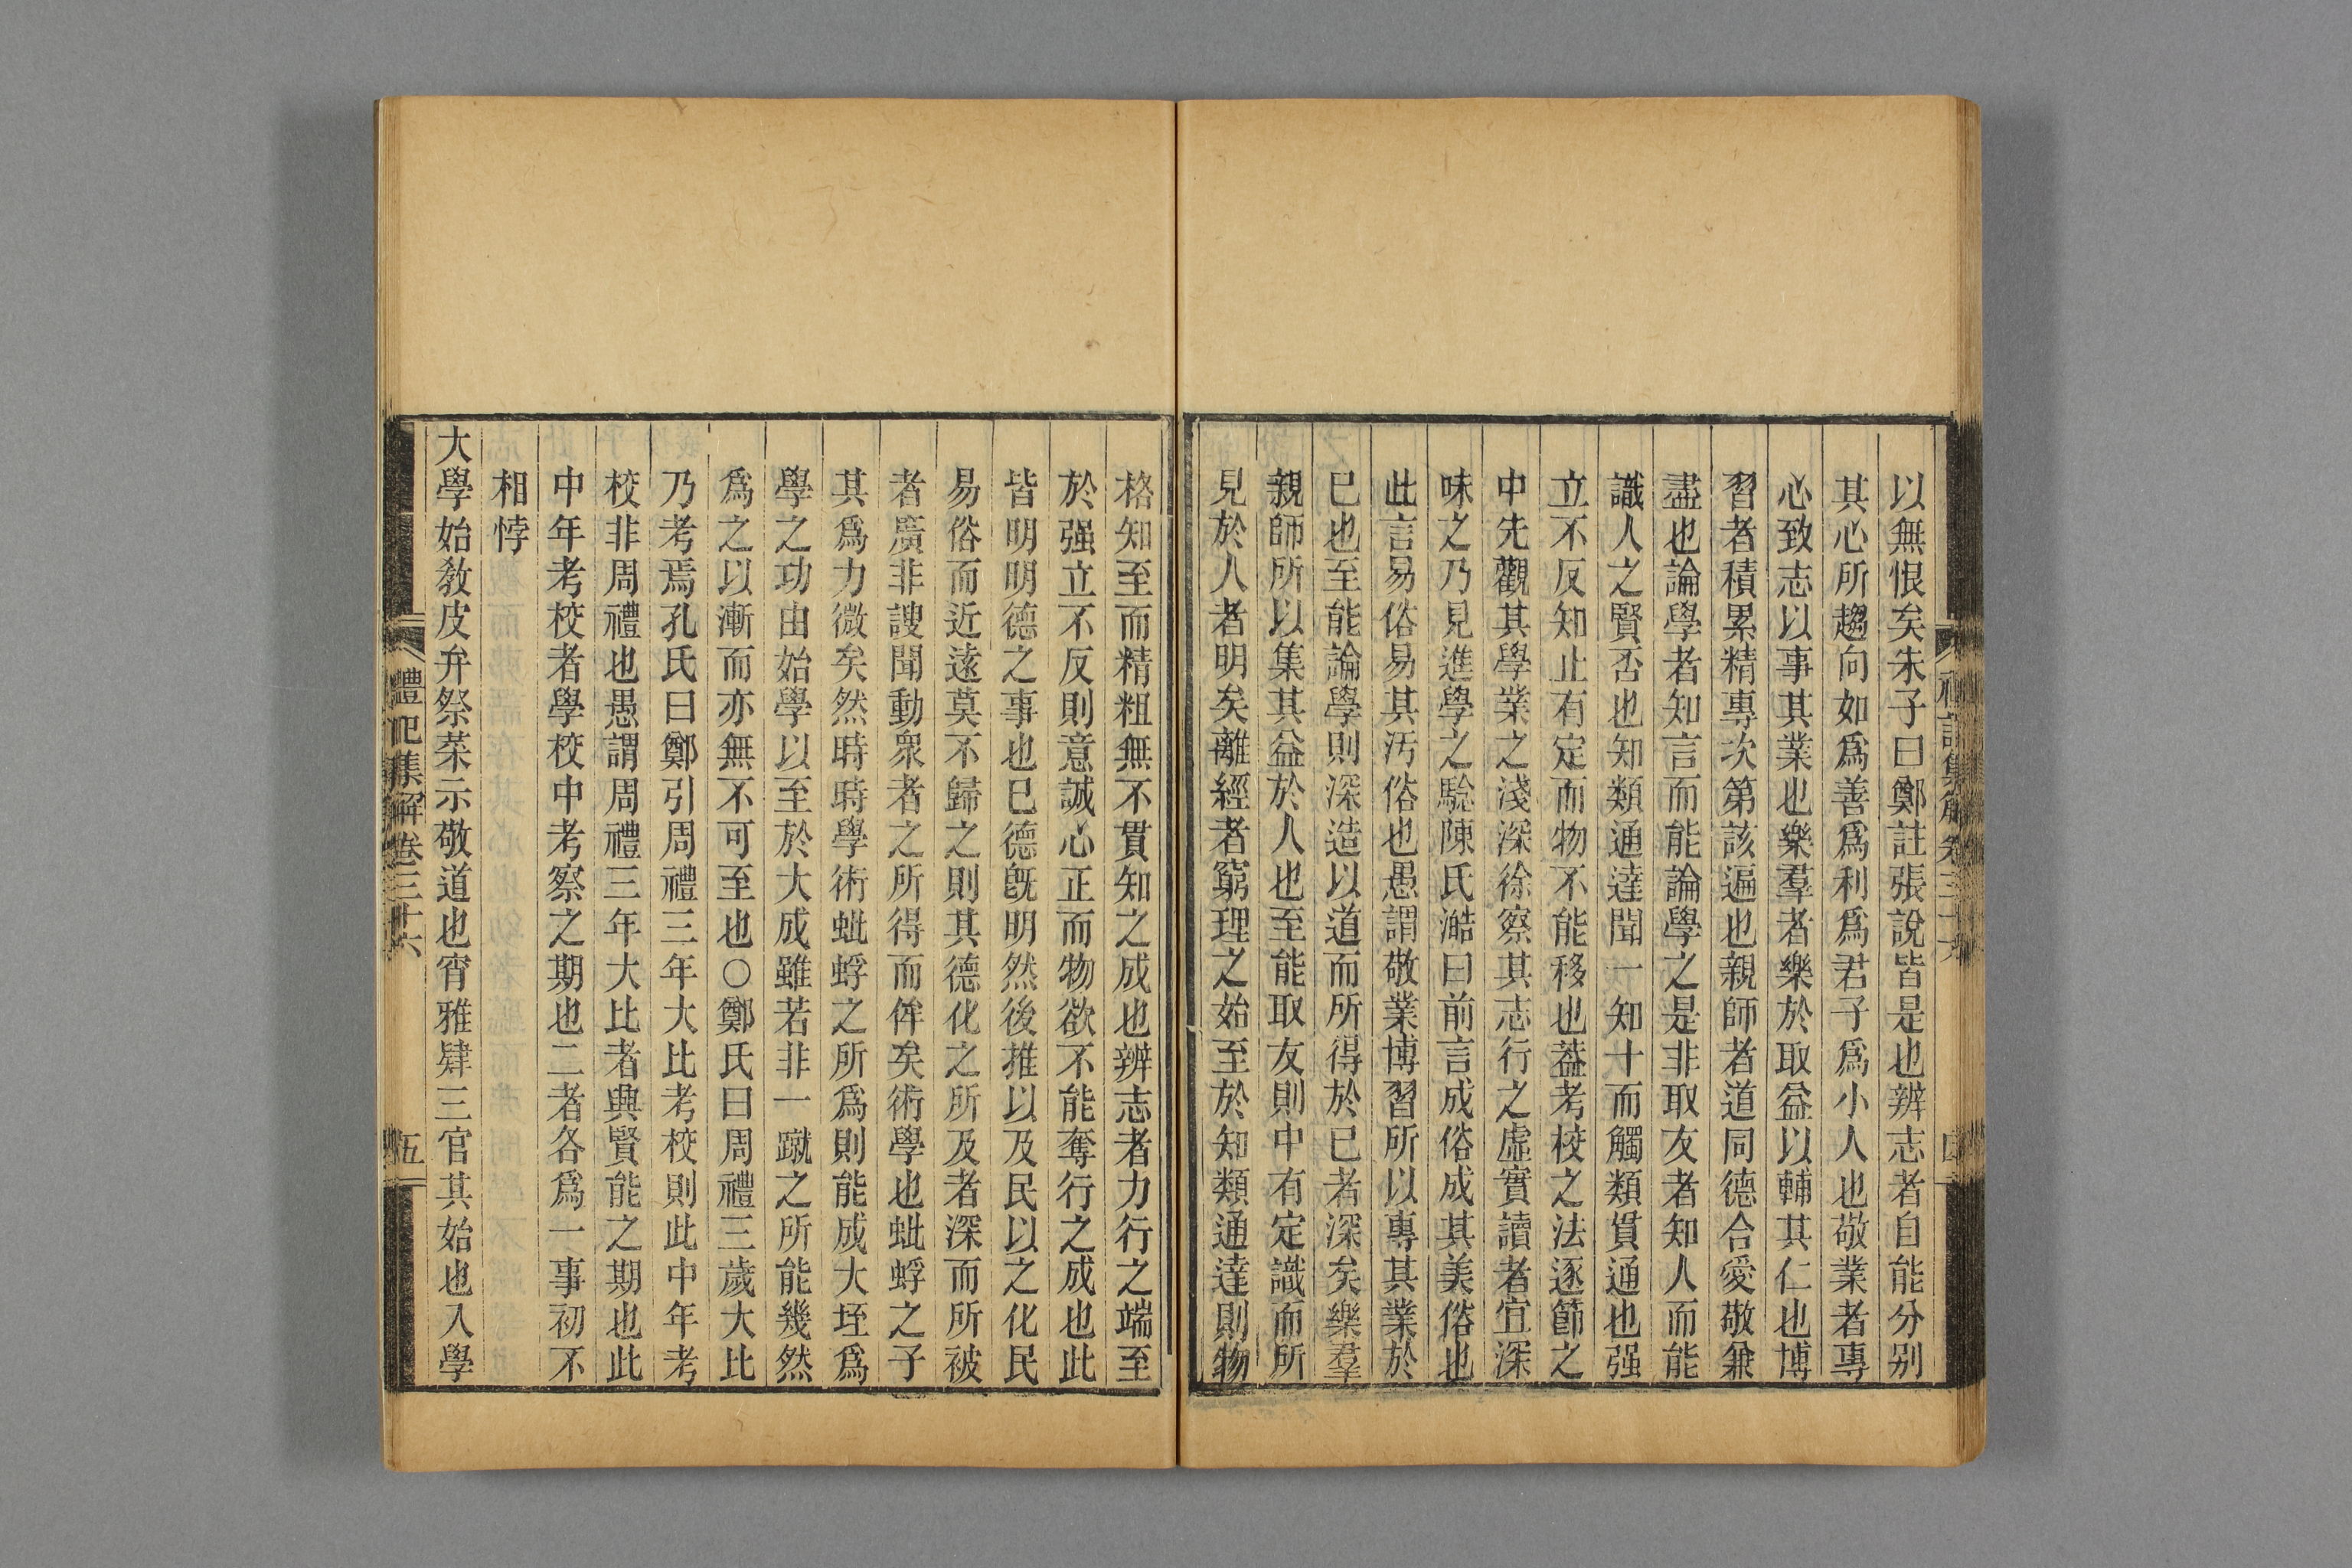 以無恨矣朱子曰鄭註張說皆是也辨志者自能分别
其心所趨向如爲善爲利爲君子爲小人也敬業者專
心致志以事其業也樂羣者樂於取益以輔其仁也博
習者積累精專次第該遍也親師者道同德合愛敬兼
盡也論學者知言而能論學之是非取友者知人而能
識人之賢否也知類通達聞一知十而觸類貫通也强
立不反知止有定而物不能移也葢考校之法逐節之
中先觀其學業之淺深徐察其志行之虛實讀者宜深
味之乃見進學之驗陳氏澔曰前言成俗成其美俗也
此言易俗易其汚俗也愚謂敬業博習所以專其業於
已也至能論學則深造以道而所得於已者深矣樂羣
親師所以集其益於人也至能取友則中有定識而所
見於人者明矣離經者窮理之始至於知類通達則物
格知至而精粗無不貫知之成也辨志者力行之端至
於强立不反則意誠心正而物欲不能奪行之成也此
皆明明德之事也已德旣明然後推以及民以之化民
易俗而近遠莫不歸之則其德化之所及者深而所被
者廣非謏聞動衆者之所得而侔矣術學也蚍蜉之子
其爲力微矣然時時學術蚍蜉之所爲則能成大垤爲
學之功由始學以至於大成雖若非一蹴之所能幾然
爲之以漸而亦無不可至也○鄭氏曰周禮三歲大比
乃考焉孔氏曰鄭引周禮三年大比考校則此中年考
校非周禮也愚謂周禮三年大比者興賢能之期也此
中年考校者學校中考察之期也二者各爲一事初不
相悖
大學始敎皮弁祭菜示敬道也宵雅肄三官其始也入學
禮記集解卷三十六
五